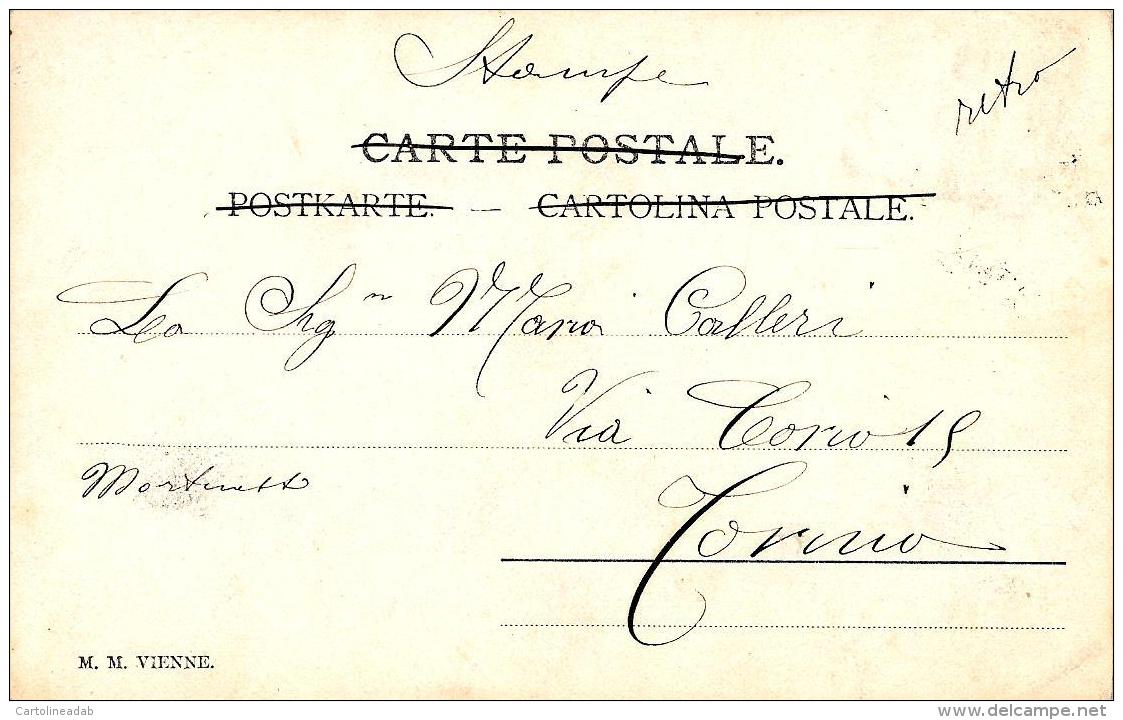 Stampe
retro
CARTE POSTALE.
POSTKARTE. — CARTOLINA POSTALE.
La Sigⁿ Maria Calleri
Via Corio 15
Martinetto
Torino
M. M. VIENNE.
Cartolineadab
www.delcampe.net